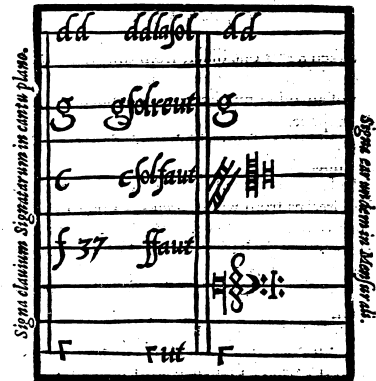 Signa clavium Signatarum in cantu plano.
dd ddlasol dd
g gsolreut g
c csolfaut
f 37 ffaut
Γ Γ ut Γ
Signa earundem in Mensurali.